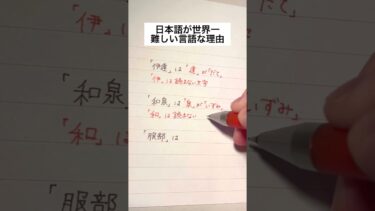 日本語が世界一
難しい言語な理由
「伊達」は「達」が「だて」
「伊」は読まない文字
「和泉」は「泉」が「いずみ」
「和」は読まない
「服部」は